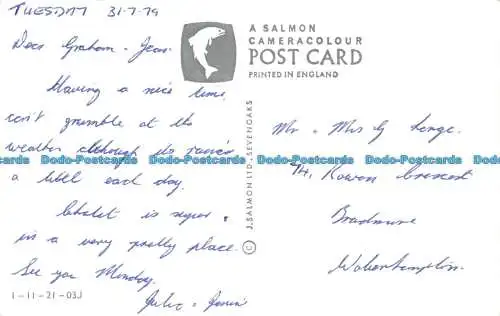 TUESDAY 31-7-79
Dear Graham & Jean.
Having a nice time,
can't grumble at the
weather although its rained
a little each day.
Chalet is super
in a very pretty place.
See you Monday.
Julie &
1-11-21-03J
A SALMON
CAMERACOLOUR
POST CARD
PRINTED IN ENGLAND
© J. SALMON LTD., SEVENOAKS
Mr & Mrs G
74, Rowan Crescent
Bradmore
Wolverhampton.
Dodo-Postcards Dodo-Postcards Dodo-Postcards Dodo-Postcards
Dodo-Postcards Dodo-Postcards Dodo-Postcards Dodo-Postcards